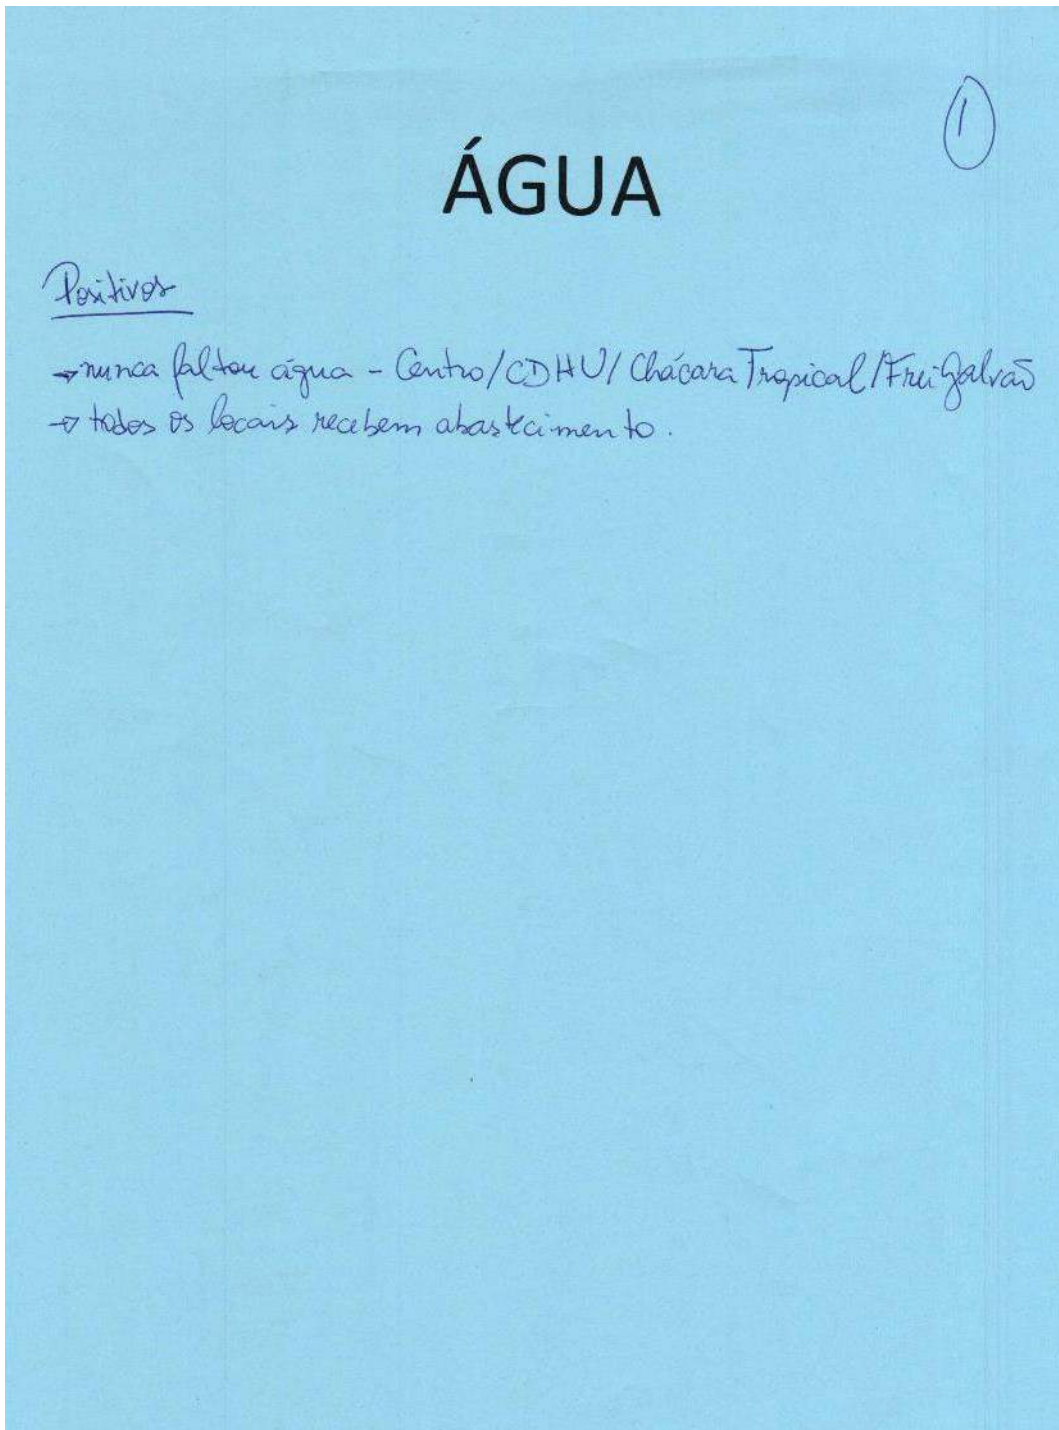 1
ÁGUA
Positivos
→ nunca faltou água - Centro/CDHU/Chácara Tropical/Frei Galvão
→ todos os locais recebem abastecimento.